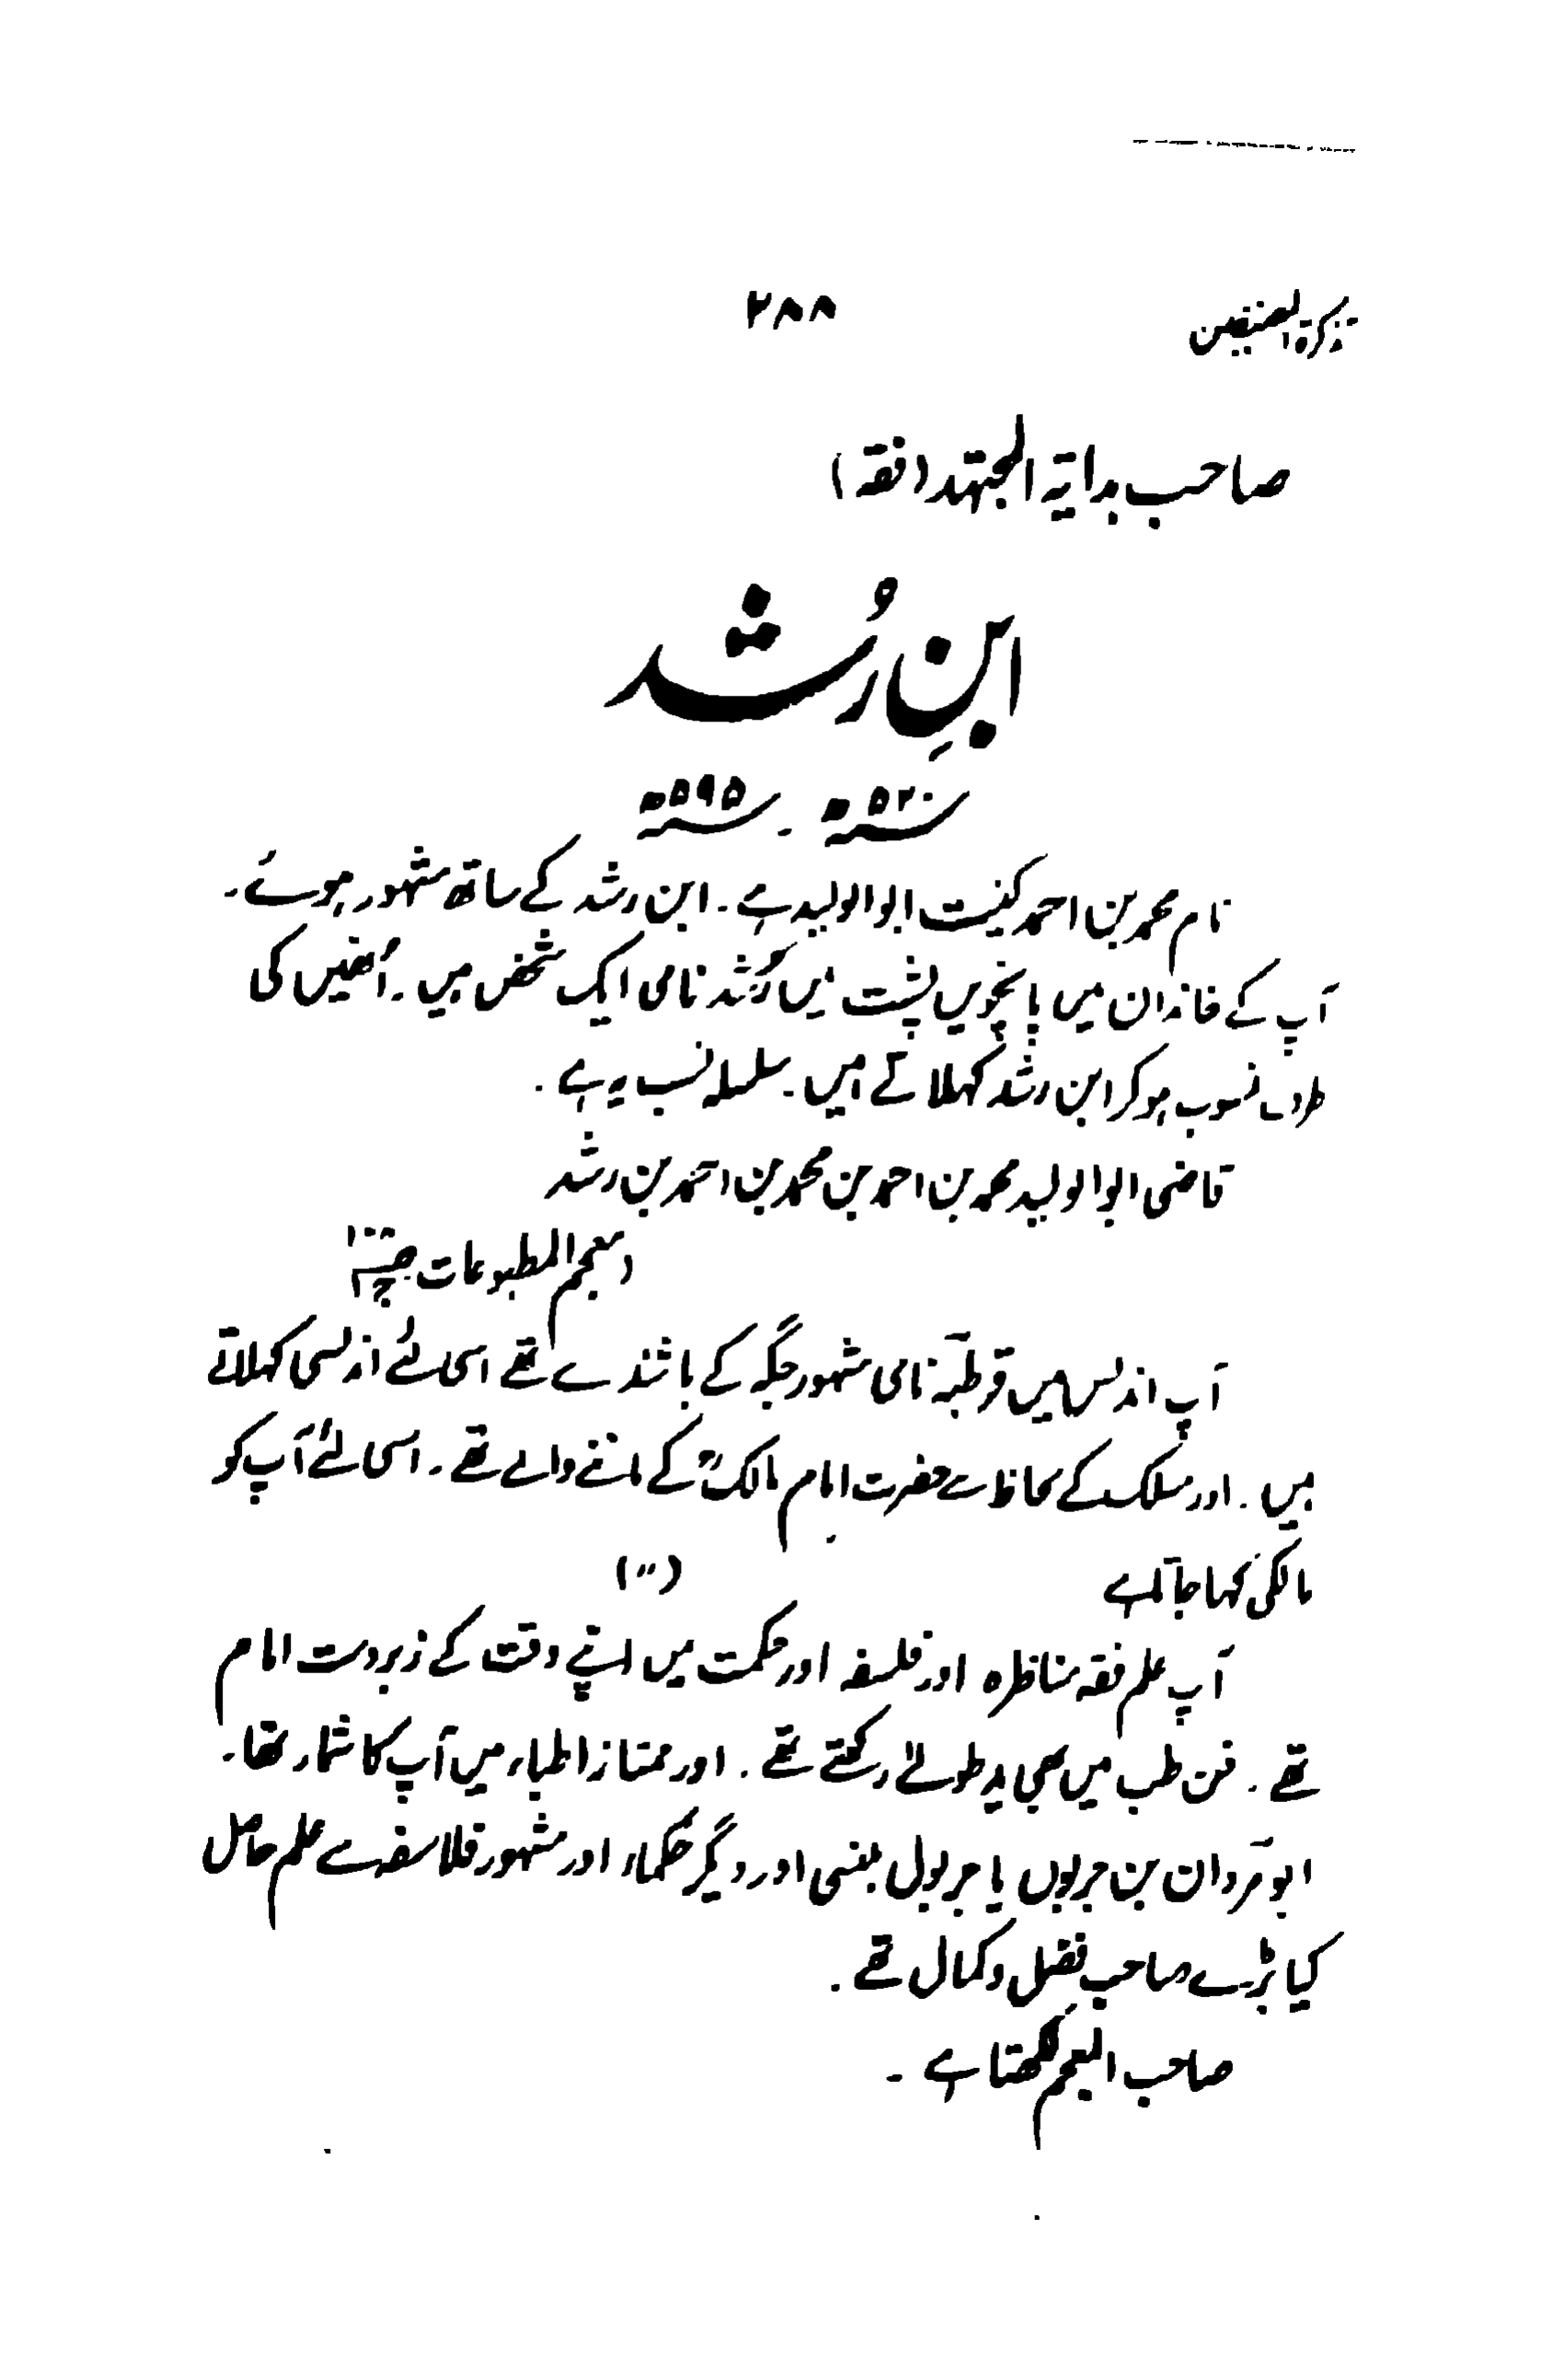 تذکرۃ المصنفین ۲۸۸
صاحب بدایۃ المجتہد (فقہ)
ابنِ رُشد
۵۲۰ھ ۔ ۵۹۵ھ
نام محمد بن احمد کنیت ابوالولید ہے ۔ ابن رشد کے ساتھ مشہور ہوئے ۔
آپ کے خاندان میں پانچویں پشت میں رُشد نامی ایک شخص ہیں ۔ اُنھیں کی
طرف منسوب ہوکر ابن رشد کہلاتے ہیں ۔ سلسلہ نسب یہ ہے ۔
قاضی ابوالولید محمد بن احمد بن محمد بن احمد بن رشد
(معجم المطبوعات
آپ اندلس میں قرطبہ نامی مشہور جگہ کے باشندے تھے اسی لئے اندلسی کہلاتے
ہیں ۔ اور مسلک کے لحاظ سے حضرت امام مالکؒ کے ماننے والے تھے ۔ اسی لئے آپ کو
مالکی کہا جاتا ہے (〃)
آپ علم فقہ مناظرہ اور فلسفہ اور حکمت میں اپنے وقت کے زبردست امام
تھے ۔ فن طب میں بھی ید طولےٰ رکھتے تھے ۔ اور ممتاز اطباء میں آپ کا شمار تھا ۔
ابو مَروان بن جربوں یا جربول بلنسی اور دیگر حکماء اور مشہور فلاسفہ سے علم حاصل
کیا بڑے صاحب فضل وکمال تھے ۔
صاحب المعجم لکھتا ہے ۔